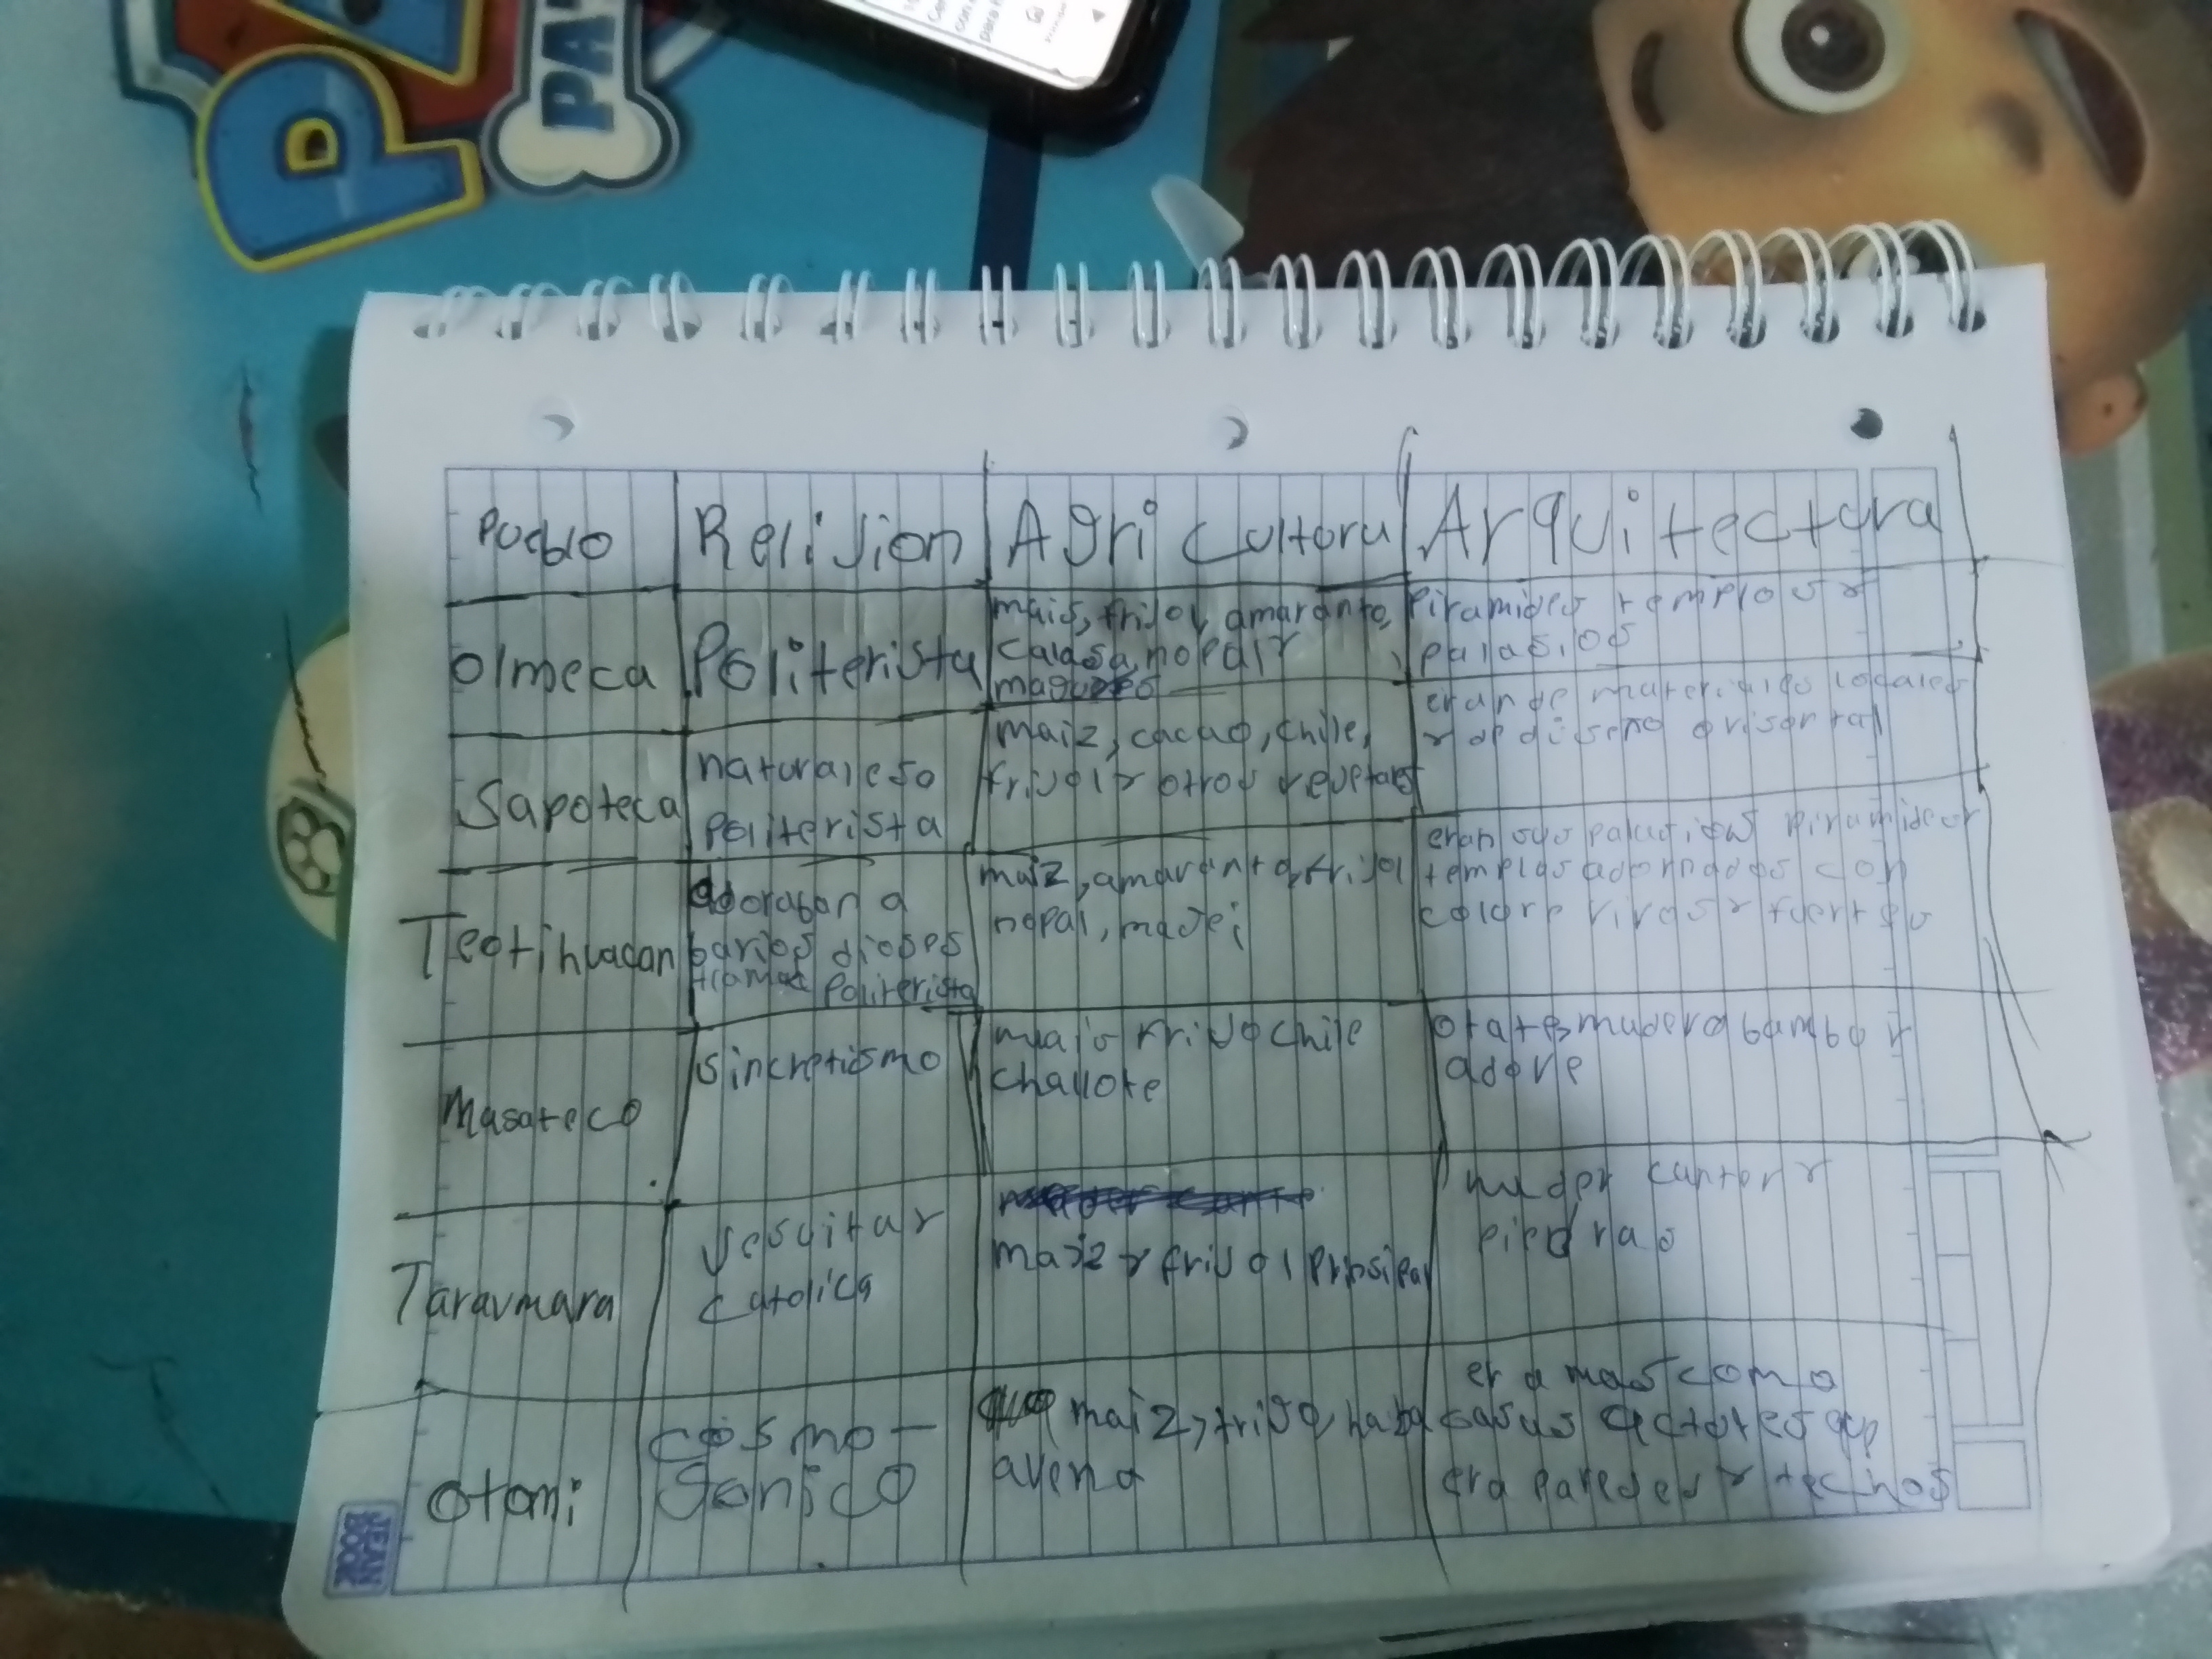 PA
Pueblo
Relijion
Agri cultura
Arquitectura
olmeca
Politerista
mais, frijol, amaranto,
calabasa, nopal y
piramides templos y
palasios
Sapoteca
naturaleso
politerista
maiz, cacao, chile,
frijol y otros
eran de materiales locales
y de diseño orisontal
Teotihuacan
adoraban a
barios dioses
politerista
maiz, amaranto, frijol
nopal, majei
eran sus palasios piramides y
templos adornados con
colore vivos y fuertes
Masateco
sincretismo
mais frijo chile
challote
otates madera bambo y
adove
Taraumara
jesuitar
catolica
maiz y frijol prinsipal
piedras
otomi
cosmo-
gonico
maiz, frijo, haba
avena
era mas como
casas
era paredes y techos
JEAN
BOOK